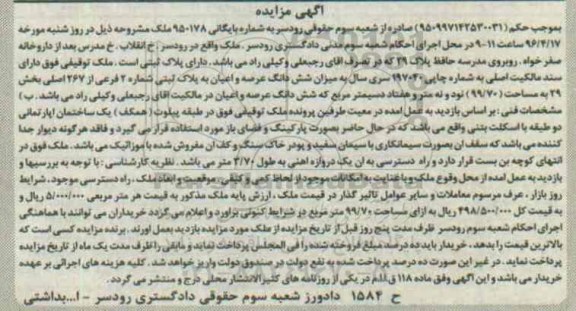 آگهی مزایده
بموجب حکم (۹۵۰۹۹۷۱۴۲۵۳۰۰۳۱) صادره از شعبه سوم حقوقی رودسر به شماره بایگانی ۹۵۰۱۷۸ ملک مشروحه ذیل در روز شنبه مورخه
۹۶/۴/۱۷ ساعت ۹-۱۱ در محل اجرای احکام شعبه سوم مدنی دادگستری رودسر. ملک واقع در رودسر: خ انقلاب. خ مدرس بعد از داروخانه
صفر خواه. روبروی مدرسه حافظ پلاک ۲۹ که در تصرف اقای رجبعلی وکیلی راد می باشد. دارای پلاک ثبتی است. ملک توقیفی فوق دارای
سند مالکیت اصلی به شماره چاپی ۱۹۷۰۴۰ سری سال به میزان شش دانگ عرصه و اعیان به پلاک ثبتی شماره ۲ فرعی از ۲۶۷ اصلی بخش
۲۹ به مساحت (۹۹/۷۰) نود و نه متر و هفتاد دسیمتر مربع که شش دانگ عرصه و اعیان در مالکیت اقای رجبعلی وکیلی راد می باشد. ب)
مشخصات فنی: بر اساس بازدید به عمل امده در معیت طرفین پرونده ملک توقیفی فوق در طبقه پیلوت (همکف) یک ساختمان اپارتمانی
دو طبقه با اسکلت بتنی واقع می باشد که در حال حاضر بصورت پارکینگ و فضای باز مورد استفاده قرار می گیرد و فاقد هرگونه دیوار جدا
کننده می باشد که سقف ان بصورت سیمانکاری با سیمان سفید و پودر خاک سنگ و کف ان مفروش شده با موزائیک می باشد. ملک فوق در
انتهای کوچه بن بست قرار دارد و راه دسترسی به ان یک دروازه اهنی به طول ۳/۷۰ متر می باشد. نظریه کارشناسی: با توجه به بررسیها و
بازدید به عمل امده از محل وقوع ملک و با عنایت به امکانات موجود از لحاظ کمی و کیفی. موقعیت و ابعاد ملک. راه دسترسی موجود. شرایط
روز بازار. عرف مرسوم معاملات و سایر عوامل تاثیر گذار در قیمت ملک. ارزش پایه ملک مذکور به قیمت هر متر مربعی ۵/۰۰۰/۰۰۰ ریال و
به قیمت کل ۴۹۸/۵۰۰/۰۰۰ ریال به ازای مساحت ۹۹/۷۰ متر مربع در شرایط کنونی براورد و اعلام می گردد خریداران می توانند با هماهنگی
اجرای احکام شعبه سوم رودسر ظرف مدت پنج روز قبل از تاریخ مزایده از ملک مورد مزایده بازدید بعمل اورند. برنده مزایده کسی است که
بالاترین قیمت را بدهد. خریدار باید ده درصد مبلغ فروخته شده را فی المجلس پرداخت نماید و مابقی را ظرف مدت یک ماه از تاریخ مزایده
پرداخت نماید. در غیر این صورت ده درصد پرداخت شده به نفع دولت در صندوق دولت واریز خواهد شد. کلیه هزینه های اجرائی بر عهده
خریدار می باشد و این اگهی وفق ماده ۱۱۸ ق.ا.م در یکی از روزنامه های کثیرالانتشار محلی درج و منتشر می گردد.
ح ۱۵۸۴ دادورز شعبه سوم حقوقی دادگستری رودسر - ا...بداشتی